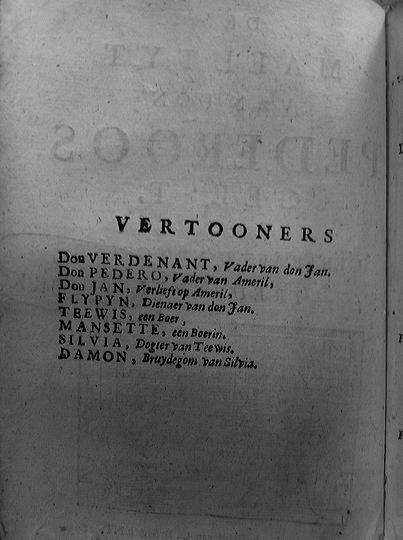 VERTOONERS
Don VERDENANT, Vader van don Jan.
Don PEDERO, Vader van Ameril,
Don JAN, Verlieft op Ameril,
FLYPYN, Dienaer van don Jan.
TEEWIS, een Boer,
MANSETTE, een Boerin.
SILVIA, Dogter van Teewis.
DAMON, Bruydegom van Silvia.